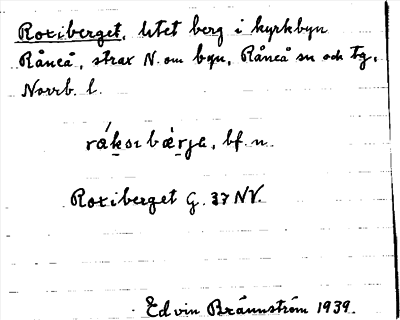 Roxiberget, litet berg i kyrkbyn
Råneå, strax N. om byn, Råneå sn och tg,
Norrb. l.
bf. n.
Roxiberget G. 37 NV.
Edvin Brännström 1939.